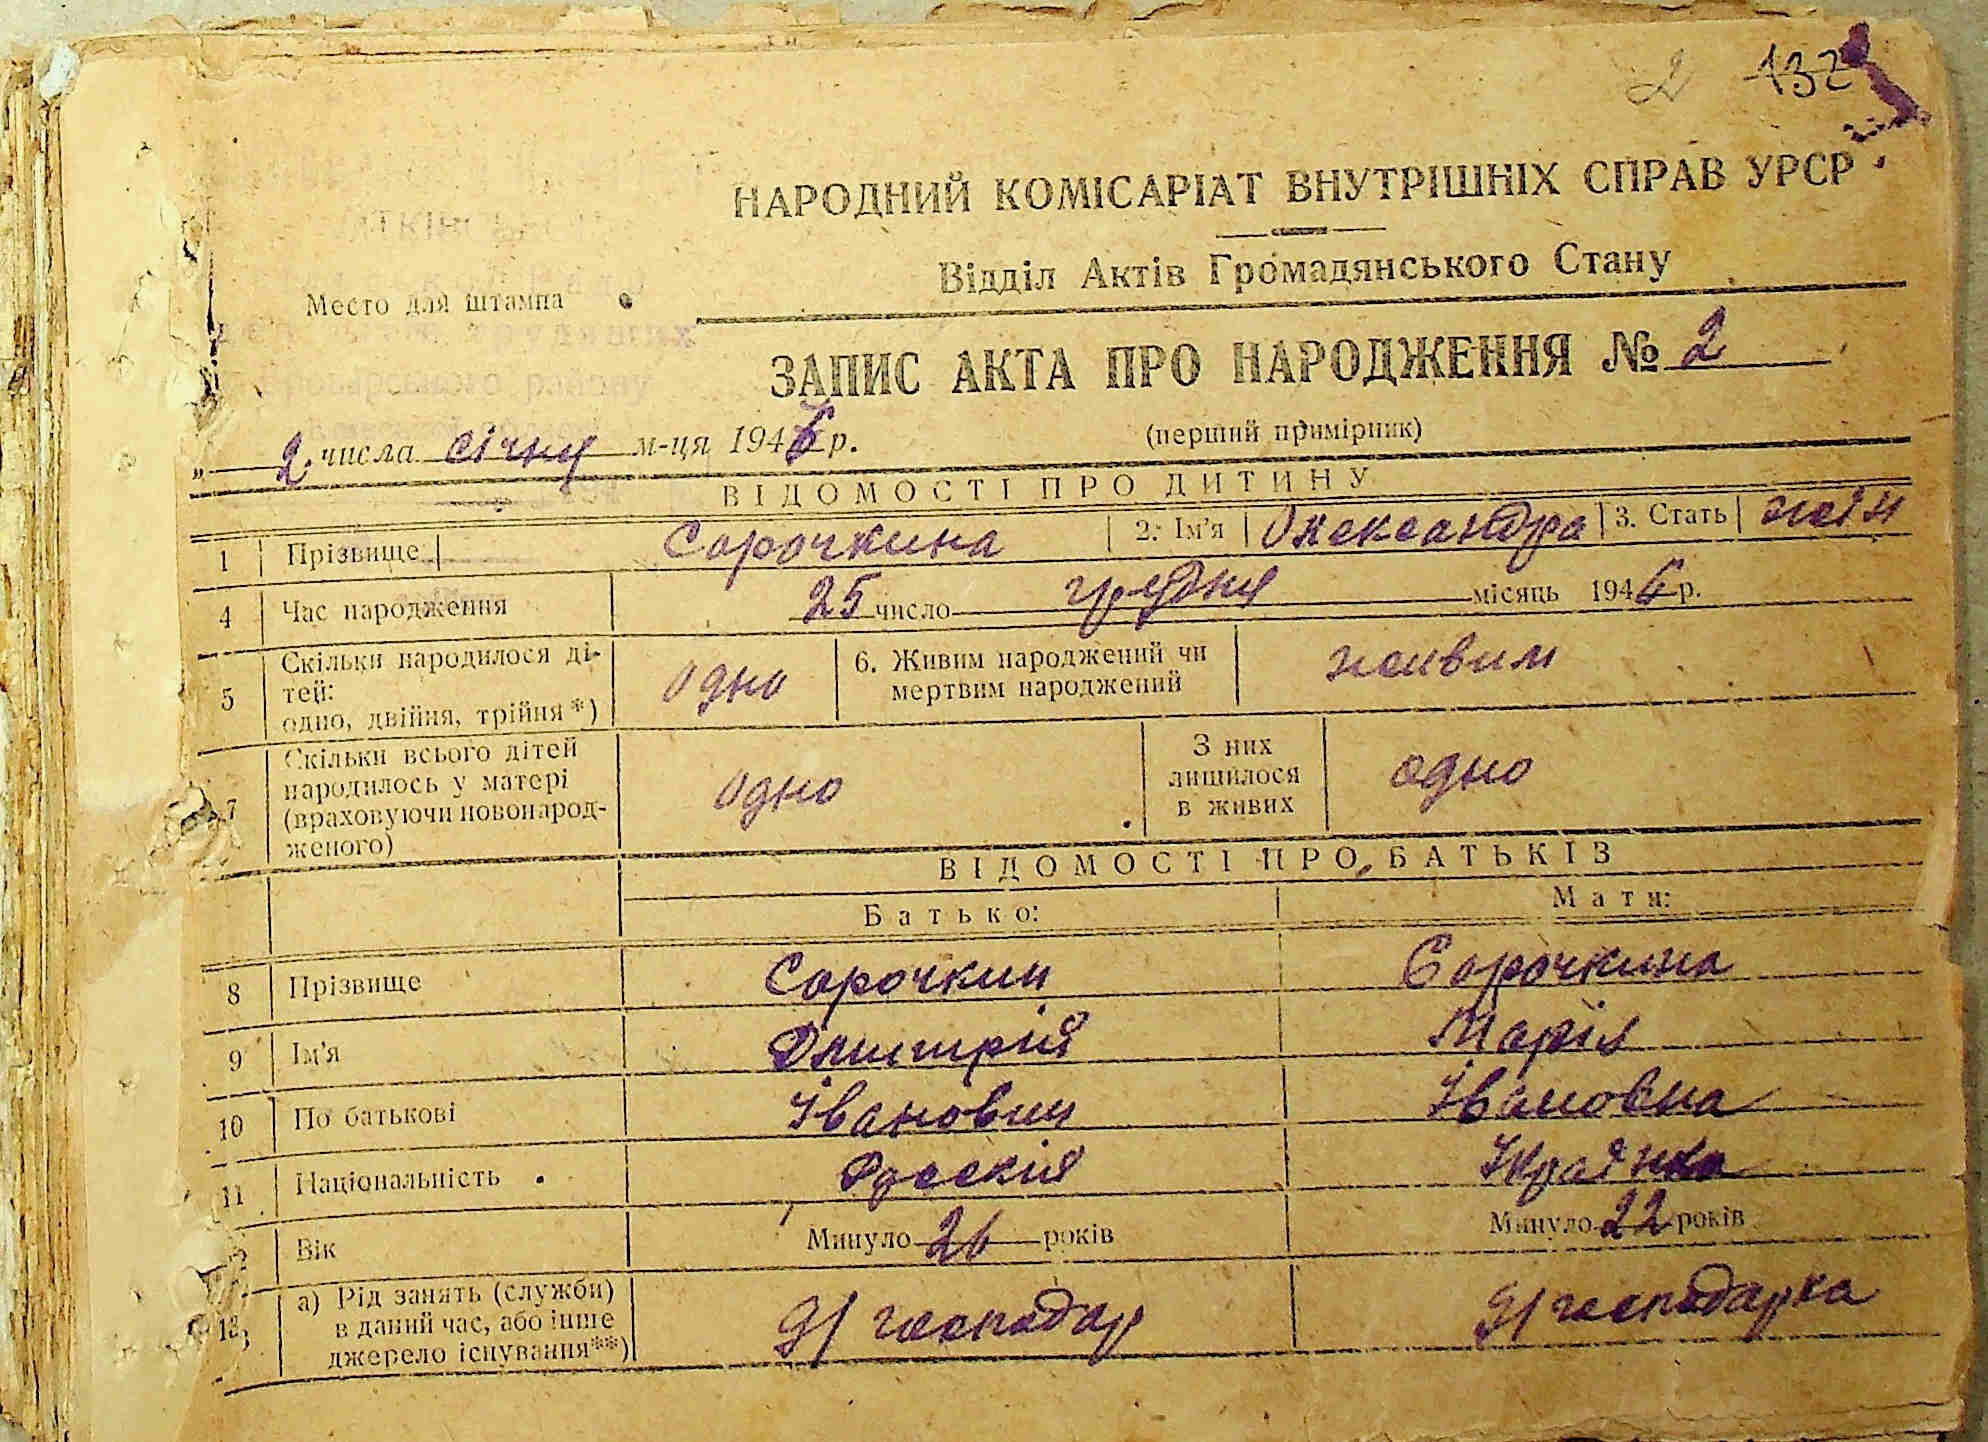 2 132
НАРОДНИЙ КОМІСАРІАТ ВНУТРІШНІХ СПРАВ УРСР
Відділ Актів Громадянського Стану
Место для штампа
трудящих
Броварського району
ЗАПИС АКТА ПРО НАРОДЖЕННЯ № 2
(перший примірник)
„ 2 числа січня м-ця 1946 р.
ВІДОМОСТІ ПРО ДИТИНУ
1 Прізвище Сорочкина 2. Ім'я Олександра 3. Стать жін
4 Час народження 25 число грудня місяць 1946 р.
5 Скільки народилося ді-
тей:
одно, двійня, трійня*) одно 6. Живим народжений чи
мертвим народжений живим
7 Скільки всього дітей
народилось у матері
(враховуючи новонарод-
женого) одно З них
лишилося
в живих одно
ВІДОМОСТІ ПРО БАТЬКІВ
Батько: Мати:
8 Прізвище Сорочкин Сорочкина
9 Ім'я Дмитрій Марія
10 По батькові Іванович Івановна
11 Національність Русскій Українка
Вік Минуло 26 років Минуло 22 років
13 а) Рід занять (служби)
в даний час, або інше
джерело існування**) Д/господар Д/господарка